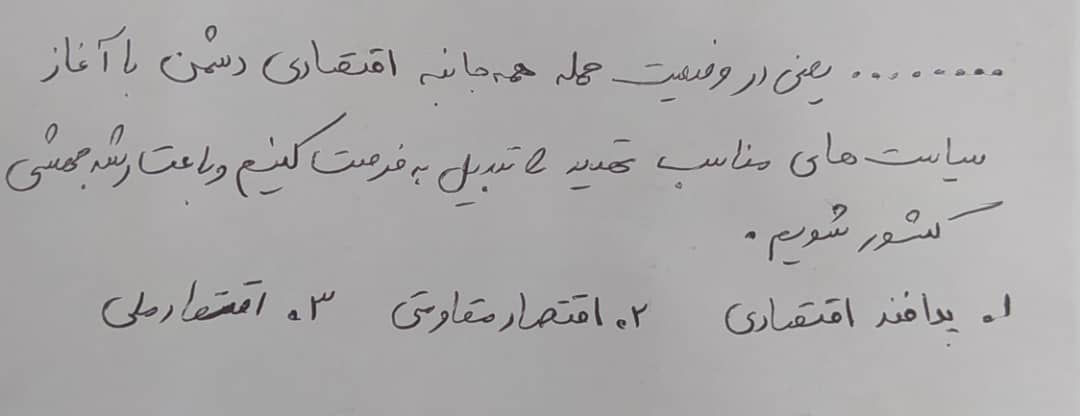 ......... یعنی در وضعیت حمله همه جانبه اقتصادی دشمن با آغاز
سیاست های مناسب تهدید را تبدیل به فرصت کنیم و باعث رشد جهشی
کشور شویم.
۱. پدافند اقتصادی ۲. اقتصاد مقاومتی ۳. اقتصاد ملی